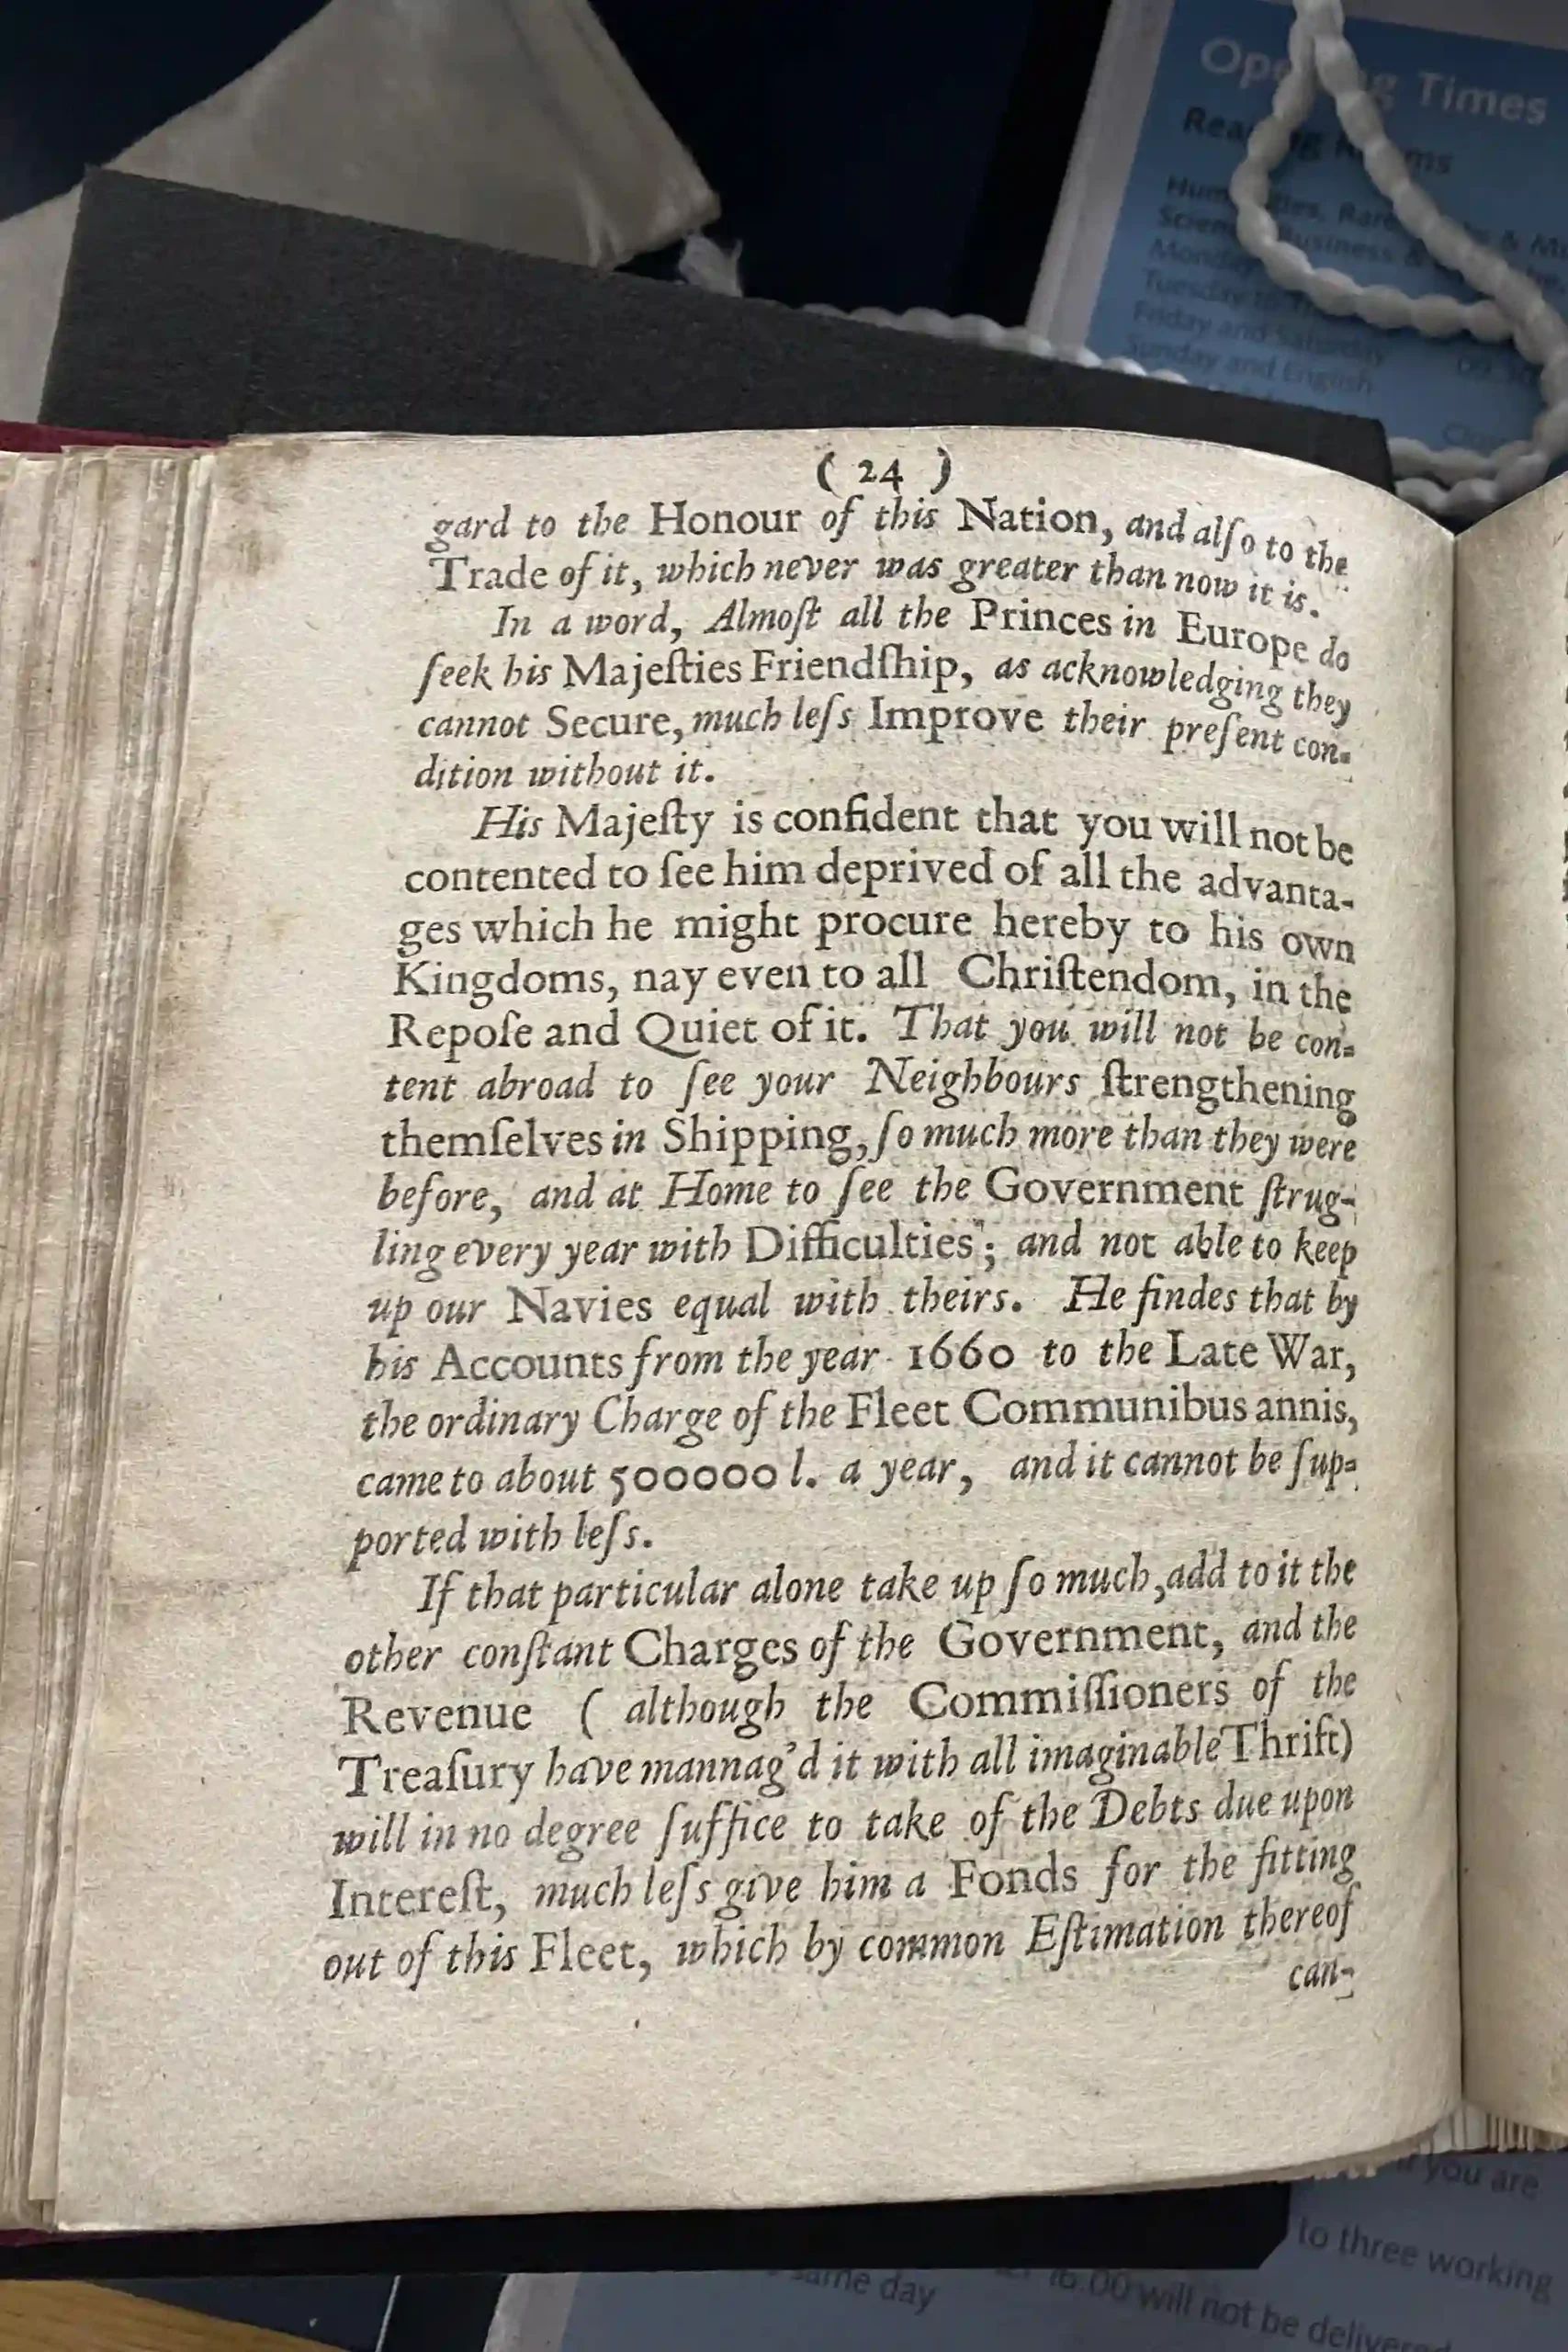 Opening Times
Reading Rooms
Monday
Tuesday to
Friday and Saturday
Sunday and English
( 24 )
gard to the Honour of this Nation, and alſo to the
Trade of it, which never was greater than now it is.
In a word, Almoſt all the Princes in Europe do
ſeek his Majeſties Friendſhip, as acknowledging they
cannot Secure, much leſs Improve their preſent con-
dition without it.
His Majeſty is confident that you will not be
contented to ſee him deprived of all the advanta-
ges which he might procure hereby to his own
Kingdoms, nay even to all Chriſtendom, in the
Repoſe and Quiet of it. That you will not be con-
tent abroad to ſee your Neighbours ſtrengthening
themſelves in Shipping, ſo much more than they were
before, and at Home to ſee the Government ſtrug-
ling every year with Difficulties; and not able to keep
up our Navies equal with theirs. He findes that by
his Accounts from the year 1660 to the Late War,
the ordinary Charge of the Fleet Communibus annis,
came to about 500000 l. a year, and it cannot be ſup-
ported with leſs.
If that particular alone take up ſo much, add to it the
other conſtant Charges of the Government, and the
Revenue ( although the Commiſſioners of the
Treaſury have mannag'd it with all imaginable Thrift)
will in no degree ſuffice to take of the Debts due upon
Intereſt, much leſs give him a Fonds for the fitting
out of this Fleet, which by common Eſtimation thereof
can-
you are
to three working
same day
16.00 will not be delivered